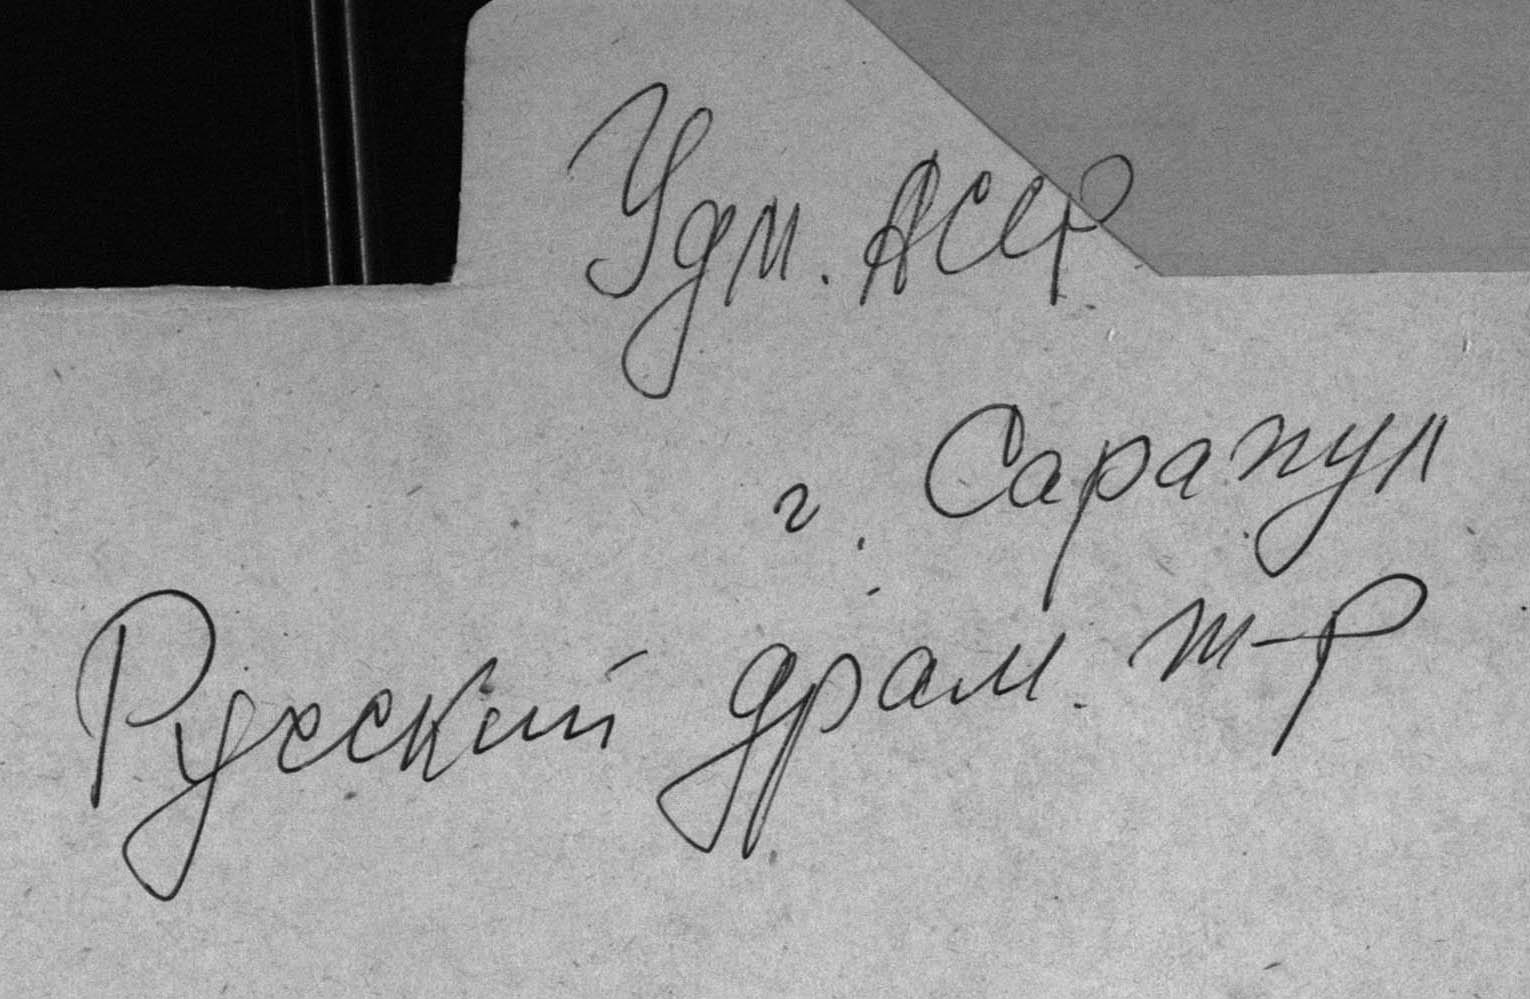 Удм. АССР
г. Сарапул
Русский драм. т-р